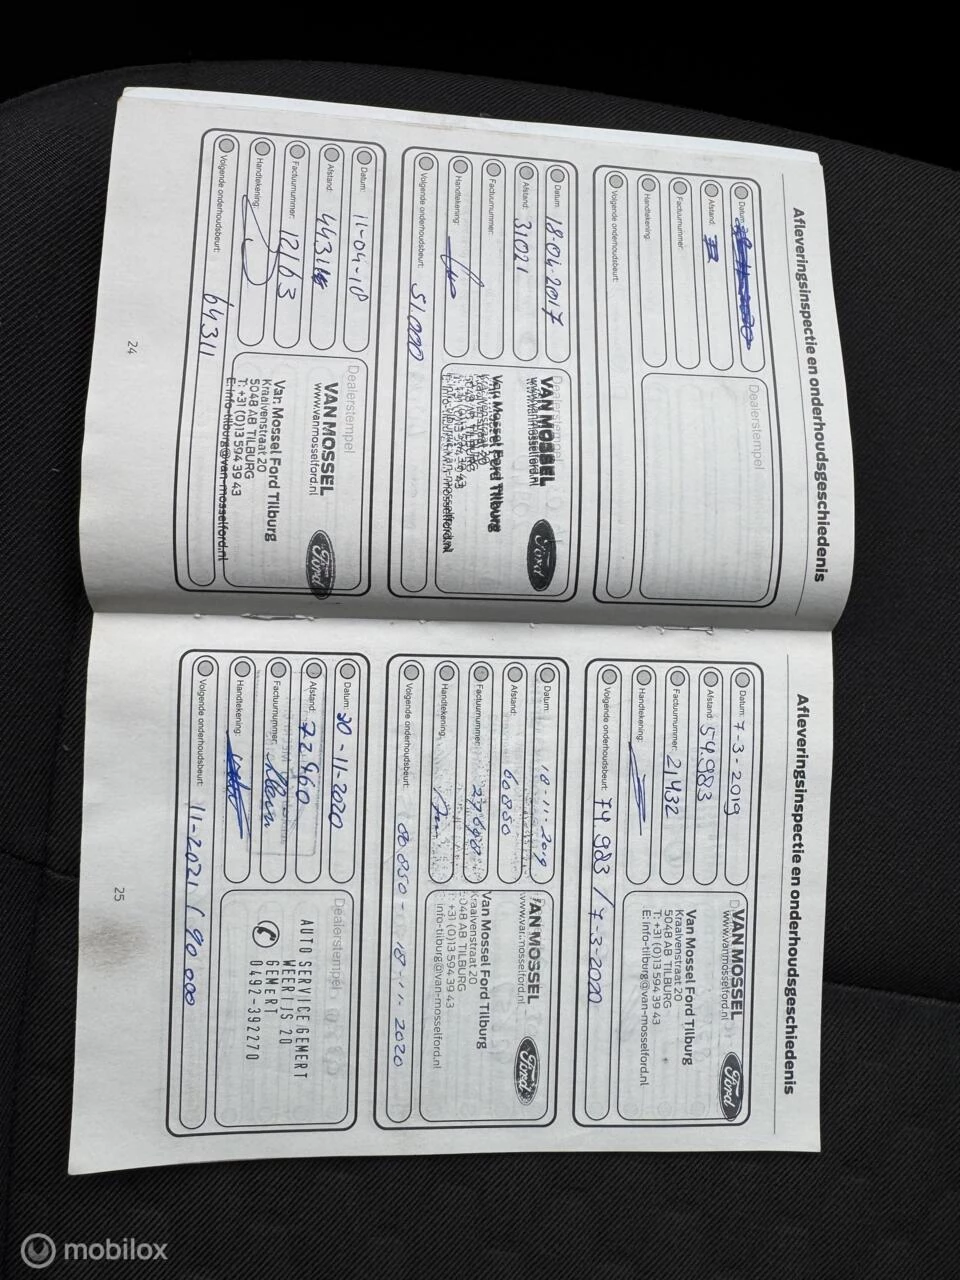 Afleveringsinspectie en onderhoudsgeschiedenis
Datum:
Afstand:
Factuurnummer:
Handtekening:
Volgende onderhoudsbeurt:
Dealerstempel
Datum: 18-04-2017
Afstand: 31021
Factuurnummer:
Handtekening:
Volgende onderhoudsbeurt: 51.000
Dealerstempel
VAN MOSSEL
www.vanmosselford.nl
Ford
Van Mossel Ford Tilburg
Kraaivenstraat 20
5048 AB TILBURG
T: +31 (0)13 594 39 43
E: info-tilburg@van-mosselford.nl
Datum: 11-04-18
Afstand: 44311
Factuurnummer: 12163
Handtekening:
Volgende onderhoudsbeurt: 64311
Dealerstempel
VAN MOSSEL
www.vanmosselford.nl
Ford
Van Mossel Ford Tilburg
Kraaivenstraat 20
5048 AB TILBURG
T: +31 (0)13 594 39 43
E: info-tilburg@van-mosselford.nl
24
Afleveringsinspectie en onderhoudsgeschiedenis
Datum: 7-3-2019
Afstand: 54.983
Factuurnummer: 21432
Handtekening:
Volgende onderhoudsbeurt: 74.983 / 7-3-2020
VAN MOSSEL
www.vanmosselford.nl
Ford
Van Mossel Ford Tilburg
Kraaivenstraat 20
5048 AB TILBURG
T: +31 (0)13 594 39 43
E: info-tilburg@van-mosselford.nl
Datum: 18-11-2019
Afstand: 60850
Factuurnummer:
Handtekening:
Volgende onderhoudsbeurt: 80850 - 18-11-2020
VAN MOSSEL
www.vanmosselford.nl
Ford
Van Mossel Ford Tilburg
Kraaivenstraat 20
5048 AB TILBURG
T: +31 (0)13 594 39 43
E: info-tilburg@van-mosselford.nl
Datum: 30-11-2020
Afstand: 72960
Factuurnummer:
Handtekening:
Volgende onderhoudsbeurt: 11-2021 / 90 000
Dealerstempel
AUTO SERVICE GEMERT
WEERIJS 20
GEMERT
0492-392270
25
mobilox